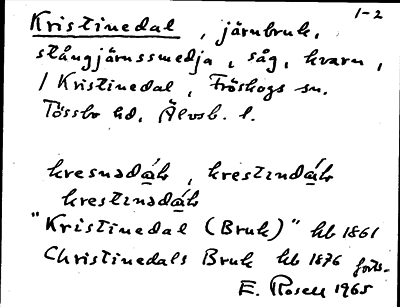 1-2
Kristinedal, järnbruk,
stångjärnssmedja, såg, kvarn,
/ Kristinedal, Fröskogs sn.
Tössbo hd, Älvsb. l.
kresnədáɫs, krestindáɫs
krestinədáɫs
"Kristinedal (Bruk)" hb 1861
Christinedals Bruk hb 1876 forts.
E. Rosell 1965